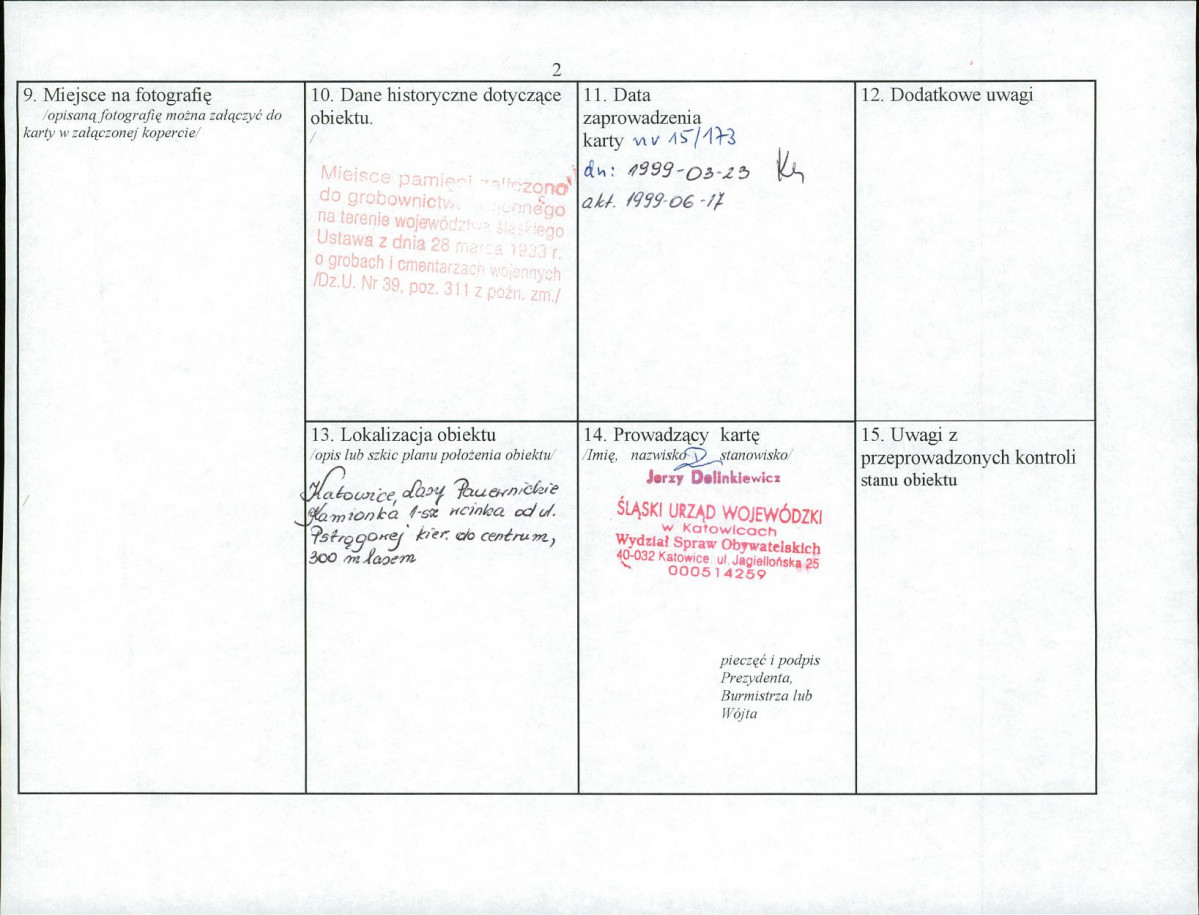 2
9. Miejsce na fotografię
/opisaną fotografię można załączyć do
karty w załączonej kopercie/
/
10. Dane historyczne dotyczące
obiektu.
/
Miejsce pamięci zaliczono
do grobownictwa wojennego
na terenie województwa śląskiego
Ustawa z dnia 28 marca 1933 r.
o grobach i cmentarzach wojennych
/Dz.U. Nr 39, poz. 311 z poźn. zm./
11. Data
zaprowadzenia
karty nr 15/173
dn: 1999-03-23
akt. 1999-06-17
12. Dodatkowe uwagi
13. Lokalizacja obiektu
/opis lub szkic planu położenia obiektu/
Katowice, Lasy Panewnickie
Kamionka 1-sza wcinka od ul.
Pstrągowej kier. do centrum,
300 m lasem
14. Prowadzący kartę
/Imię, nazwisko stanowisko/
Jerzy Dolinkiewicz
ŚLĄSKI URZĄD WOJEWÓDZKI
w Katowicach
Wydział Spraw Obywatelskich
40-032 Katowice, ul. Jagiellońska 25
000514259
pieczęć i podpis
Prezydenta,
Burmistrza lub
Wójta
15. Uwagi z
przeprowadzonych kontroli
stanu obiektu